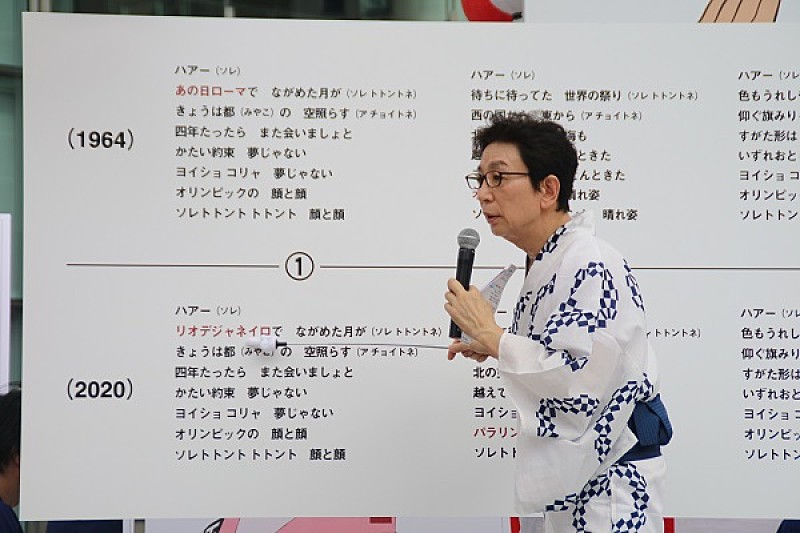 (1964)
ハアー（ソレ）
あの日ローマで　ながめた月が（ソレトトントネ）
きょうは都（みやこ）の　空照らす（アチョイトネ）
四年たったら　また会いましょと
かたい約束　夢じゃない
ヨイショ コリャ　夢じゃない
オリンピックの　顔と顔
ソレトトント トトント　顔と顔
ハアー（ソレ）
待ちに待ってた　世界の祭り（ソレトトントネ）
西の国から　東から（アチョイトネ）
海も
ときた
んときた
晴れ姿
ソ　晴れ姿
ハアー（ソレ
色もうれし
仰ぐ旗みり
すがた形は
いずれおと
ヨイショコ
オリンピ
ソレトトント
①
(2020)
ハアー（ソレ）
リオデジャネイロで　ながめた月が（ソレトトントネ）
きょうは都（みやこ）の　空照らす（アチョイトネ）
四年たったら　また会いましょと
かたい約束　夢じゃない
ヨイショ コリャ　夢じゃない
オリンピックの　顔と顔
ソレトトント トトント　顔と顔
レイトトントネ）
北の
越えて
ヨイショ
パラリン
ソレトン
ハアー（ソレ
色もうれし
仰ぐ旗みり
すがた形は
いずれおと
ヨイショコ
オリンピッ
ソレトトント